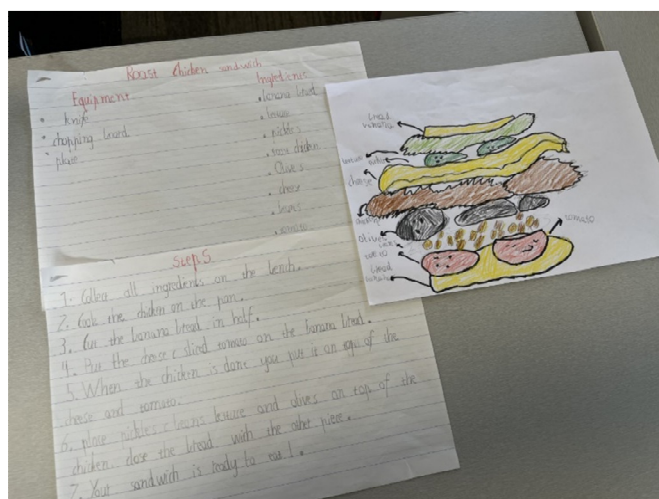 Roast chicken sandwich
Equipment
knife
chopping board
plate
Ingredients
banana bread
pickles
Olives
cheese
tomato
Steps
1. Collect all ingredients on the bench.
2. Cook the chicken on the pan.
3. Cut the banana bread in half.
4. Put the cheese & sliced tomato on the banana bread.
5. When the chicken is done you put it on top of the
cheese and tomato.
6. place pickles beans and olives on top of the
chicken. close the bread with the other piece.
7. Your sandwich is ready to eat!
bread
cheese
olives
bread
tomato